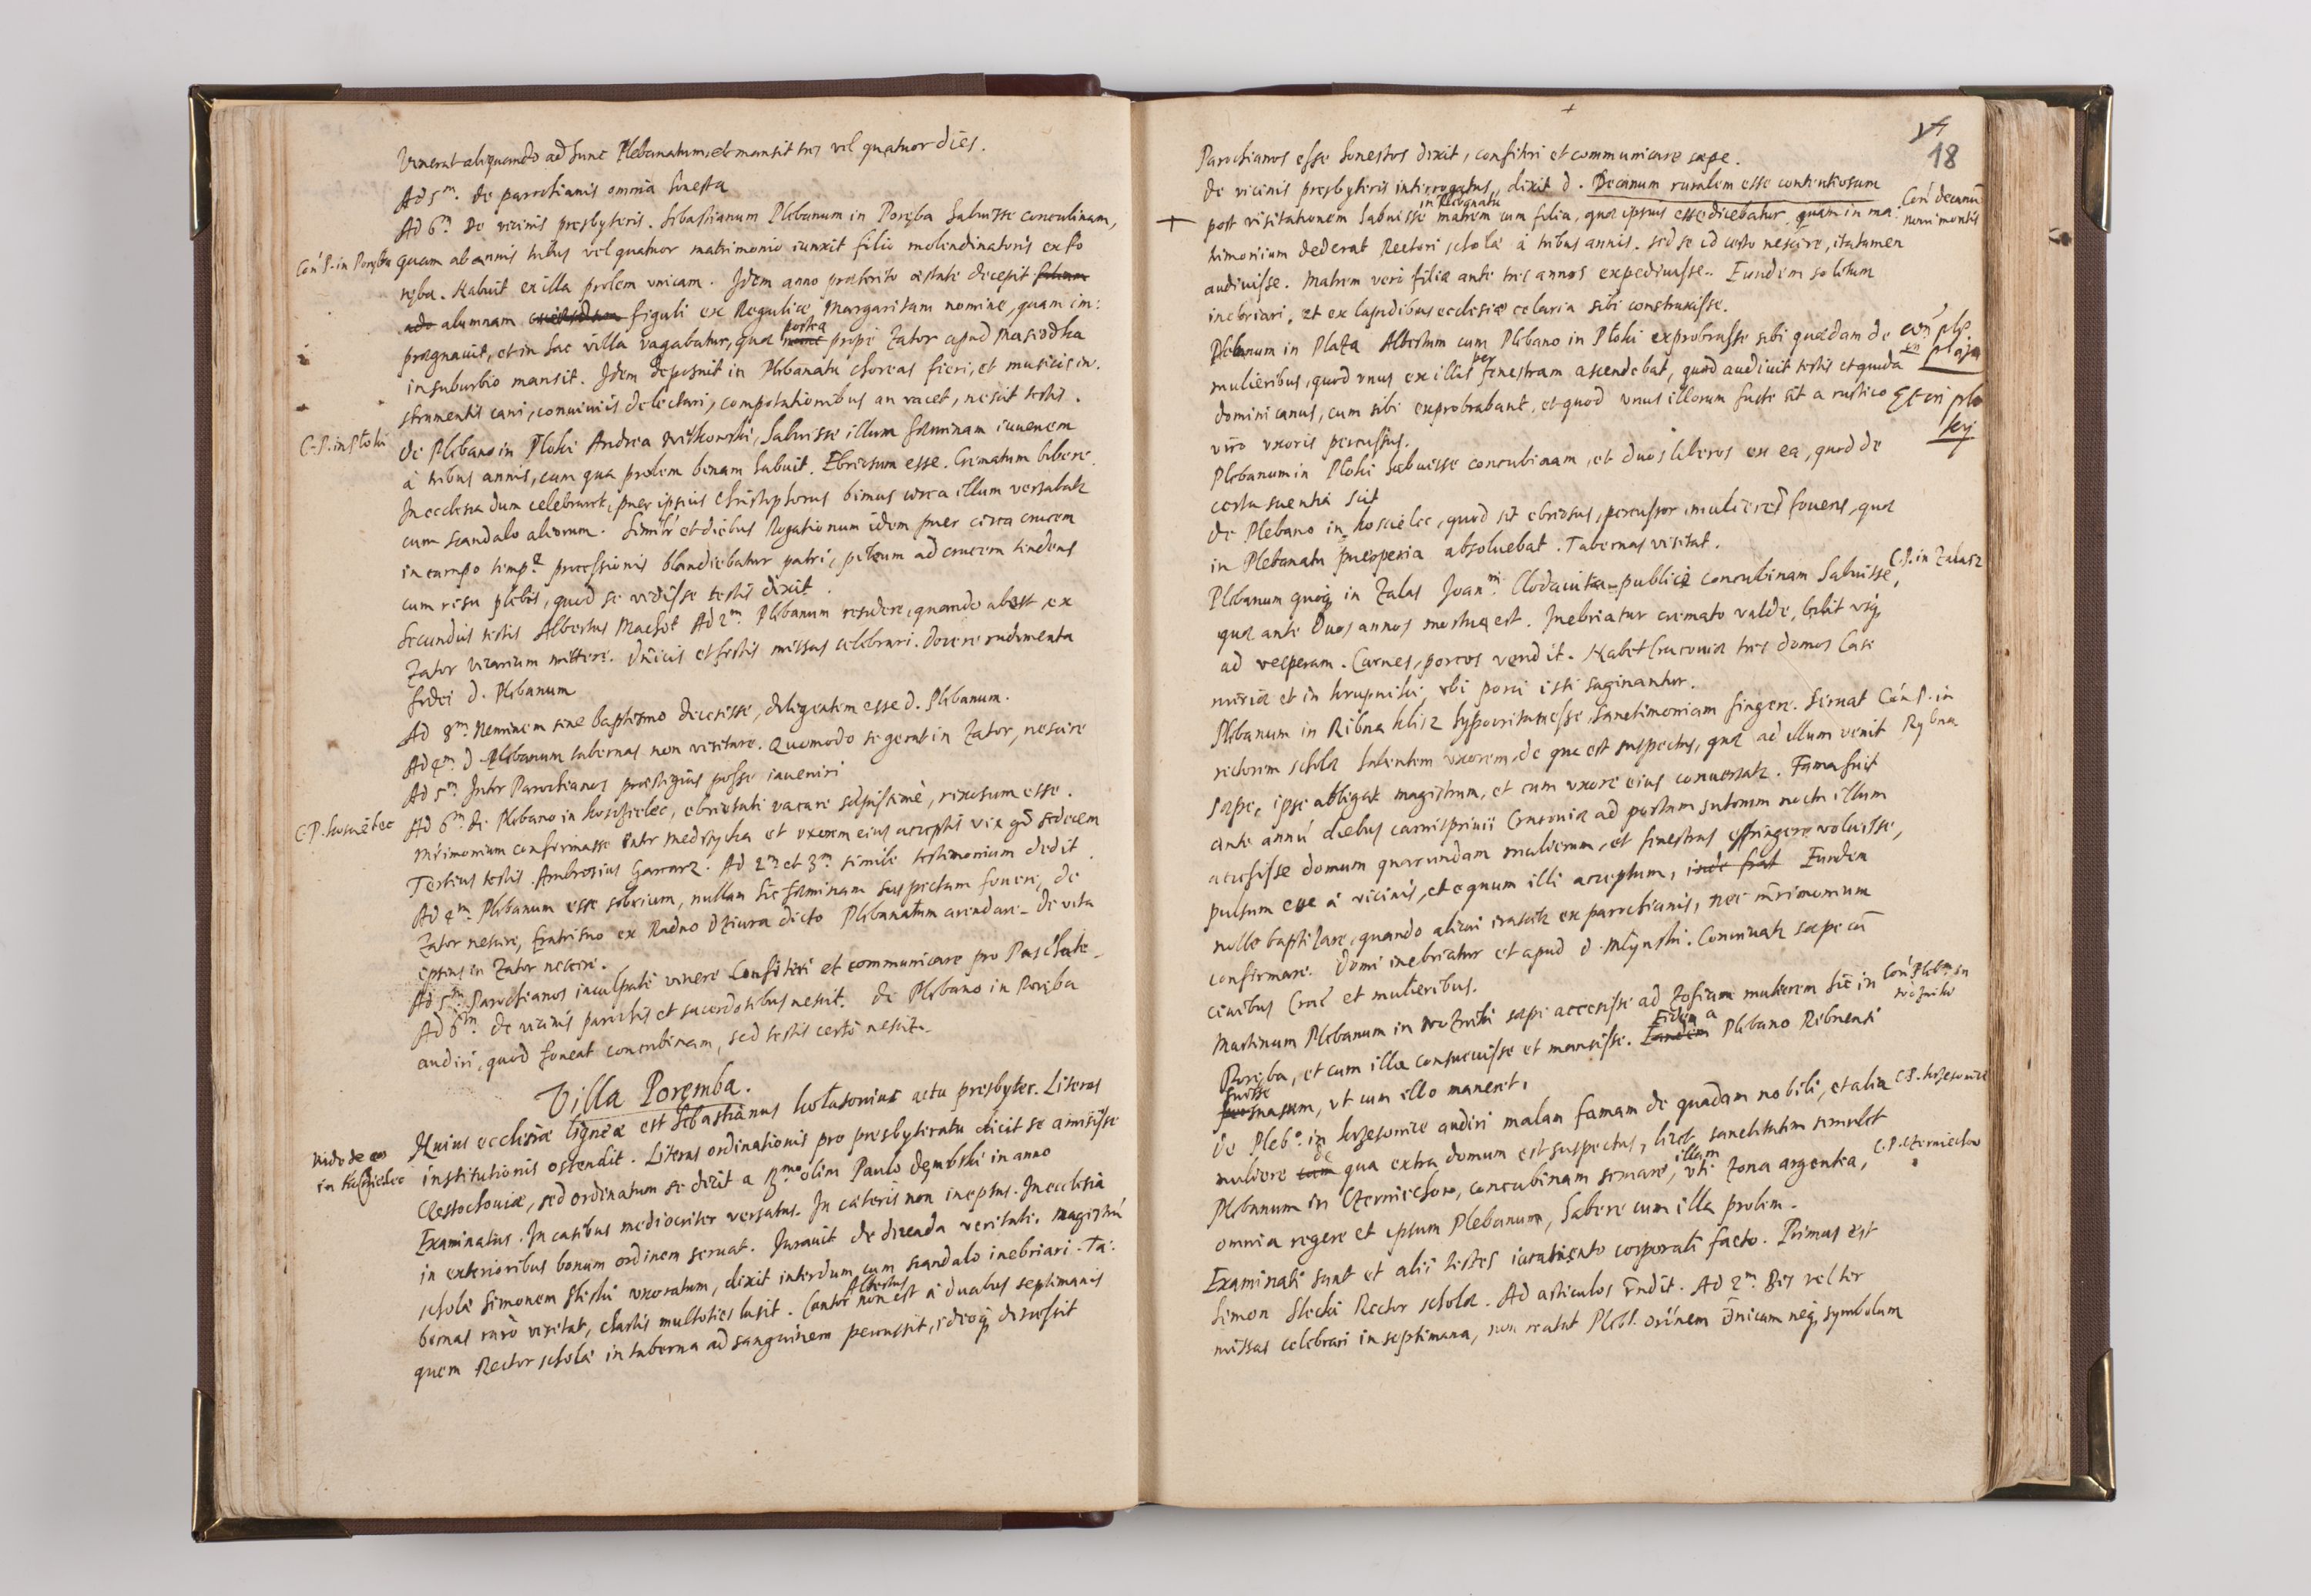 Venerat aliquando ad hunc Plebanatum, et mansit tres vel quatuor dies.
Ad 5m. de parochianis omnia honesta
Ad 6m De vicinis presbyteris. Sebastianum Plebanum in Poręba habuisse concubinam,
Con. P. in Poręba
quam ab annis tribus vel quatuor matrimonio iunxit filio molendinatoris ex Po
ręba. Habuit ex illa prolem unicam. Idem anno præterito æstate decepit filiam
alumnam figuli ex Regulice, Margaritam nomine, quam im:
prægnavit, et in hac villa vagabatur, quæ postea prope Zator apud
in suburbio mansit. Idem deposuit in Plebanatu choreas fieri, et musicis in:
strumentis cani, conviviis delectari, compotationibus an vacet, nescit testis.
C. P. in Płoki
de Plebano in Płoki Andrea Witkowski, habuisse illum fæminam iuvenem
à tribus annis, cum qua prolem binam habuit. Ebriosum esse. Crematum bibere.
In ecclesia dum celebraret, puer ipsius Christophorus bimus circa illum versabatur
cum scandalo aliorum. Similr et diebus Rogationum idem puer circa crucem
in campo tempe processionis blandiebatur patri, pileum ad crucem tendens
cum risu plebis, quod se vidisse testis dixit.
Secundus testis Albertus Machot Ad 2m. Plebanum residere, quando abest, ex
Zator Vicarium mittere. Dnicis et festis missas celebrari. Docere rudimenta
fidei d. Plebanum
Ad 3m Neminem sine baptismo decessisse, diligentem esse d. Plebanum.
Ad 4m. d. Plebanum tabernas non visitare. Quomodo se gerat in Zator, nescire
Ad 5m Inter Parochianos præstigias posse inveniri
C. P. Koscielec
Ad 6m. de Plebano in Koscielec, ebrietati vacare sæpissimè, rixosum esse.
Mrimonium confirmasse inter Medrzycha et uxorem eius acceptis vix gd sedecim
Tertius testis Ambrosius Garcarz. Ad 2m et 3m simile testimonium dedit.
Ad 4m. Plebanum esse sobrium, nullam hic fæminam suspectam fovere, de
Zator nescire, fratri suo ex Radno Dziura dicto Plebanatum arendare. De vita
ipsius in Zator nescire.
Ad 5m. Parochianos inculpate vivere Confiteri et communicare pro Paschate.
Ad 6m de vicinis parochis et sacerdotibus nescit. de Plebano in Poręba
audiri, quod foveat concubinam, sed testis certò nescit.
Villa Poremba.
Vide de eo
in Kościelec
Huius ecclesiæ ligneæ est Sebastianus Kołasonius actu presbyter. Literas
institutionis ostendit. Literas ordinationis pro presbyteratu dicit se amisisse
Cestochoviæ, sed ordinatum se dicit a Rmo olim Paulo Dembski in anno
Examinatus. In casibus mediocriter versatus. In cæteris non ineptus. In ecclesia
in exterioribus bonum ordinem servat. Iuravit de dicenda veritate. Magistrũ
scholæ Simonem Słeski uxoratum, dixit interdum cum scandalo inebriari. Ta:
bernas rarò visitat, chartis multoties lusit. Cantor Albertus non est à duabus septimanis
quem Rector scholæ in taberna ad sanguinem percussit, ideoq discessit
18
Parochianos esse honestos dixit, confiteri et communicare sæpe.
De vicinis presbyteris interrogatus, dixit d. Decanum ruralem esse contentiosum
Con. decanũ
novi montis
post visitationem habuisse in Plebanatu matrem cum filia, quæ ipsius esse dicebatur, quam in ma:
trimonium dederat Rectori scholæ à tribus annis. sed se id certo nescire, ita tamen
audivisse. Matrem verò filiæ ante tres annos expedivisse. Eundem solitum
inebriari, et ex lapidibus ecclesiæ celaria sibi construxisse.
Plebanum in Plaza Albertum cum Plebano in Płoki exprobrasse sibi quædam de
con plb
in plaza
mulieribus, quod unus ex illis per fenestram ascendebat, quod audivit testis et quida
dominicanus, cum sibi exprobrabant, et quod unus illorum fuste sit a rustico
Et in plo
kij
viro uxoris percussus.
Plebanum in Płoki habuisse concubinam, et duos liberos ex ea, quod de
certa scientia scit
de Plebano in Koscielec, quod sit ebriosus, percussor, mulieres fovens, quæ
in Plebanatu puerperia absolvebat. Tabernas visitat.
Plebanum quoq in Zalas Joanm. publice concubinam habuisse,
C. P. in Zalasz
quæ ante duos annos mortua est. Inebriatur cremato valde, bibit usq
ad vesperam. Carnes, porcos vendit. Habet Cracoviæ tres domos Casi
miriæ et in Krupniki, ubi porci isti saginantur.
Plebanum in Ribna Klisz hypocritam esse, sanctimoniam fingere. Servat
Con P. in
Rybna
rectorem scholæ habentem uxorem, de qua est suspectus, quæ ad illum venit
sæpe, ipse ablegat magistrum, et cum uxore eius conversatr. Fama fuit
ante annũ diebus carnisprivii Cracoviæ ad portam sutorum noctu illum
accessisse domum quarundam mulierum, et fenestras effringere voluisse,
pulsum esse à vicinis, et equum illi acceptum, Eundem
nolle baptizare, quando alicui irascitur ex parochianis, nec mrimonium
confirmare. Domi inebriatur et apud d. Młynski. Convivatr sæpe cũ
civibus Crac et mulieribus.
Martinum Plebanum in Wozniki sæpe accessisse ad Zofiam mulierem hic in
Con Plebm in
wozniki
Poręba, et cum illa consuevisse et mansisse. Eidem a Plebano Ribnensi
fuisse suasum, ut cum illo maneret,
De Plebo. in Krzesowice audiri malam famam de quadam nobili, et alia
C. P. Krzesowice
muliere de qua extra domum est suspectus, licet sanctitatem simulet
Plebanum in Czernichow, concubinam servare, illam uti zona argentea,
C. P. Czernichow
omnia regere et ipsum Plebanum, habere cum illa prolem.
Examinati sunt et alii testes iuramento corporali facto. Primus est
Simon Slecki Rector scholæ. Ad articulos rndit. Ad 2m. Bis vel ter
missas celebrari in septimana, non recitat Plebs. orõnem Dnicam neq symbolum